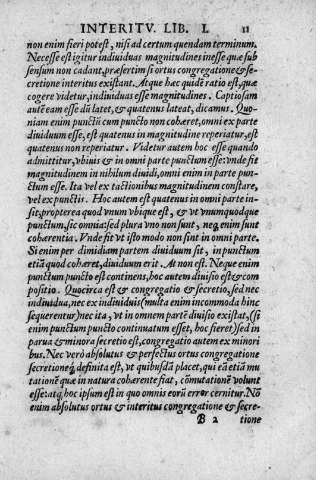 INTERITV. LIB. I. 11
non enim fieri potest, nisi ad certum quendam terminum.
Necesse est igitur indiuiduas magnitudines inesse quæ sub
sensum non cadant, præsertim si ortus congregatione & se-
cretione interitus existant. Atque hæc quidē ratio est, quæ
cogere videtur, indiuiduas esse magnitudines. Captiosam
autē eam esse dū latet, & quatenus lateat, dicamus. Quo-
niam enim punctū cum puncto non cohæret, omni ex parte
diuiduum esse, est quatenus in magnitudine reperiatur, est
quatenus non reperiatur. Videtur autem hoc esse quando
admittitur, vbiuis & in omni parte punctum esse: vnde fit
magnitudinem in nihilum diuidi, omni enim in parte pun-
ctum esse. Ita vel ex tactionibus magnitudinem constare,
vel ex punctis. Hoc autem est quatenus in omni parte in-
sit: propterea quod vnum vbique est, & vt vnumquodque
punctum, sic omnia: sed plura vno non sunt, neq; enim sunt
cohærentia. Vnde fit vt isto modo non sint in omni parte.
Si enim per dimidiam partem diuiduum sit, in punctum
etiā quod cohæret, diuiduum erit. At non est. Neque enim
punctum puncto est continens, hoc autem diuisio est & com
positio. Quocirca est & congregatio & secretio, sed nec
indiuidua, nec ex indiuiduis (multa enim incommoda hinc
sequerentur) nec ita, vt in omnem partē diuisio existat, (si
enim punctum puncto continuatum esset, hoc fieret) sed in
parua & minora secretio est, congregatio autem ex minori
bus. Nec verò absolutus & perfectus ortus congregatione
secretioneq; definita est, vt quibusdā placet, qui eā etiā mu
tationē quæ in natura cohærente fiat, cōmutationē volunt
esse: atq; hoc ipsum est in quo omnis eorū error cernitur. Nō
enim absolutus ortus & interitus congregatione & secre-
B 2 tione